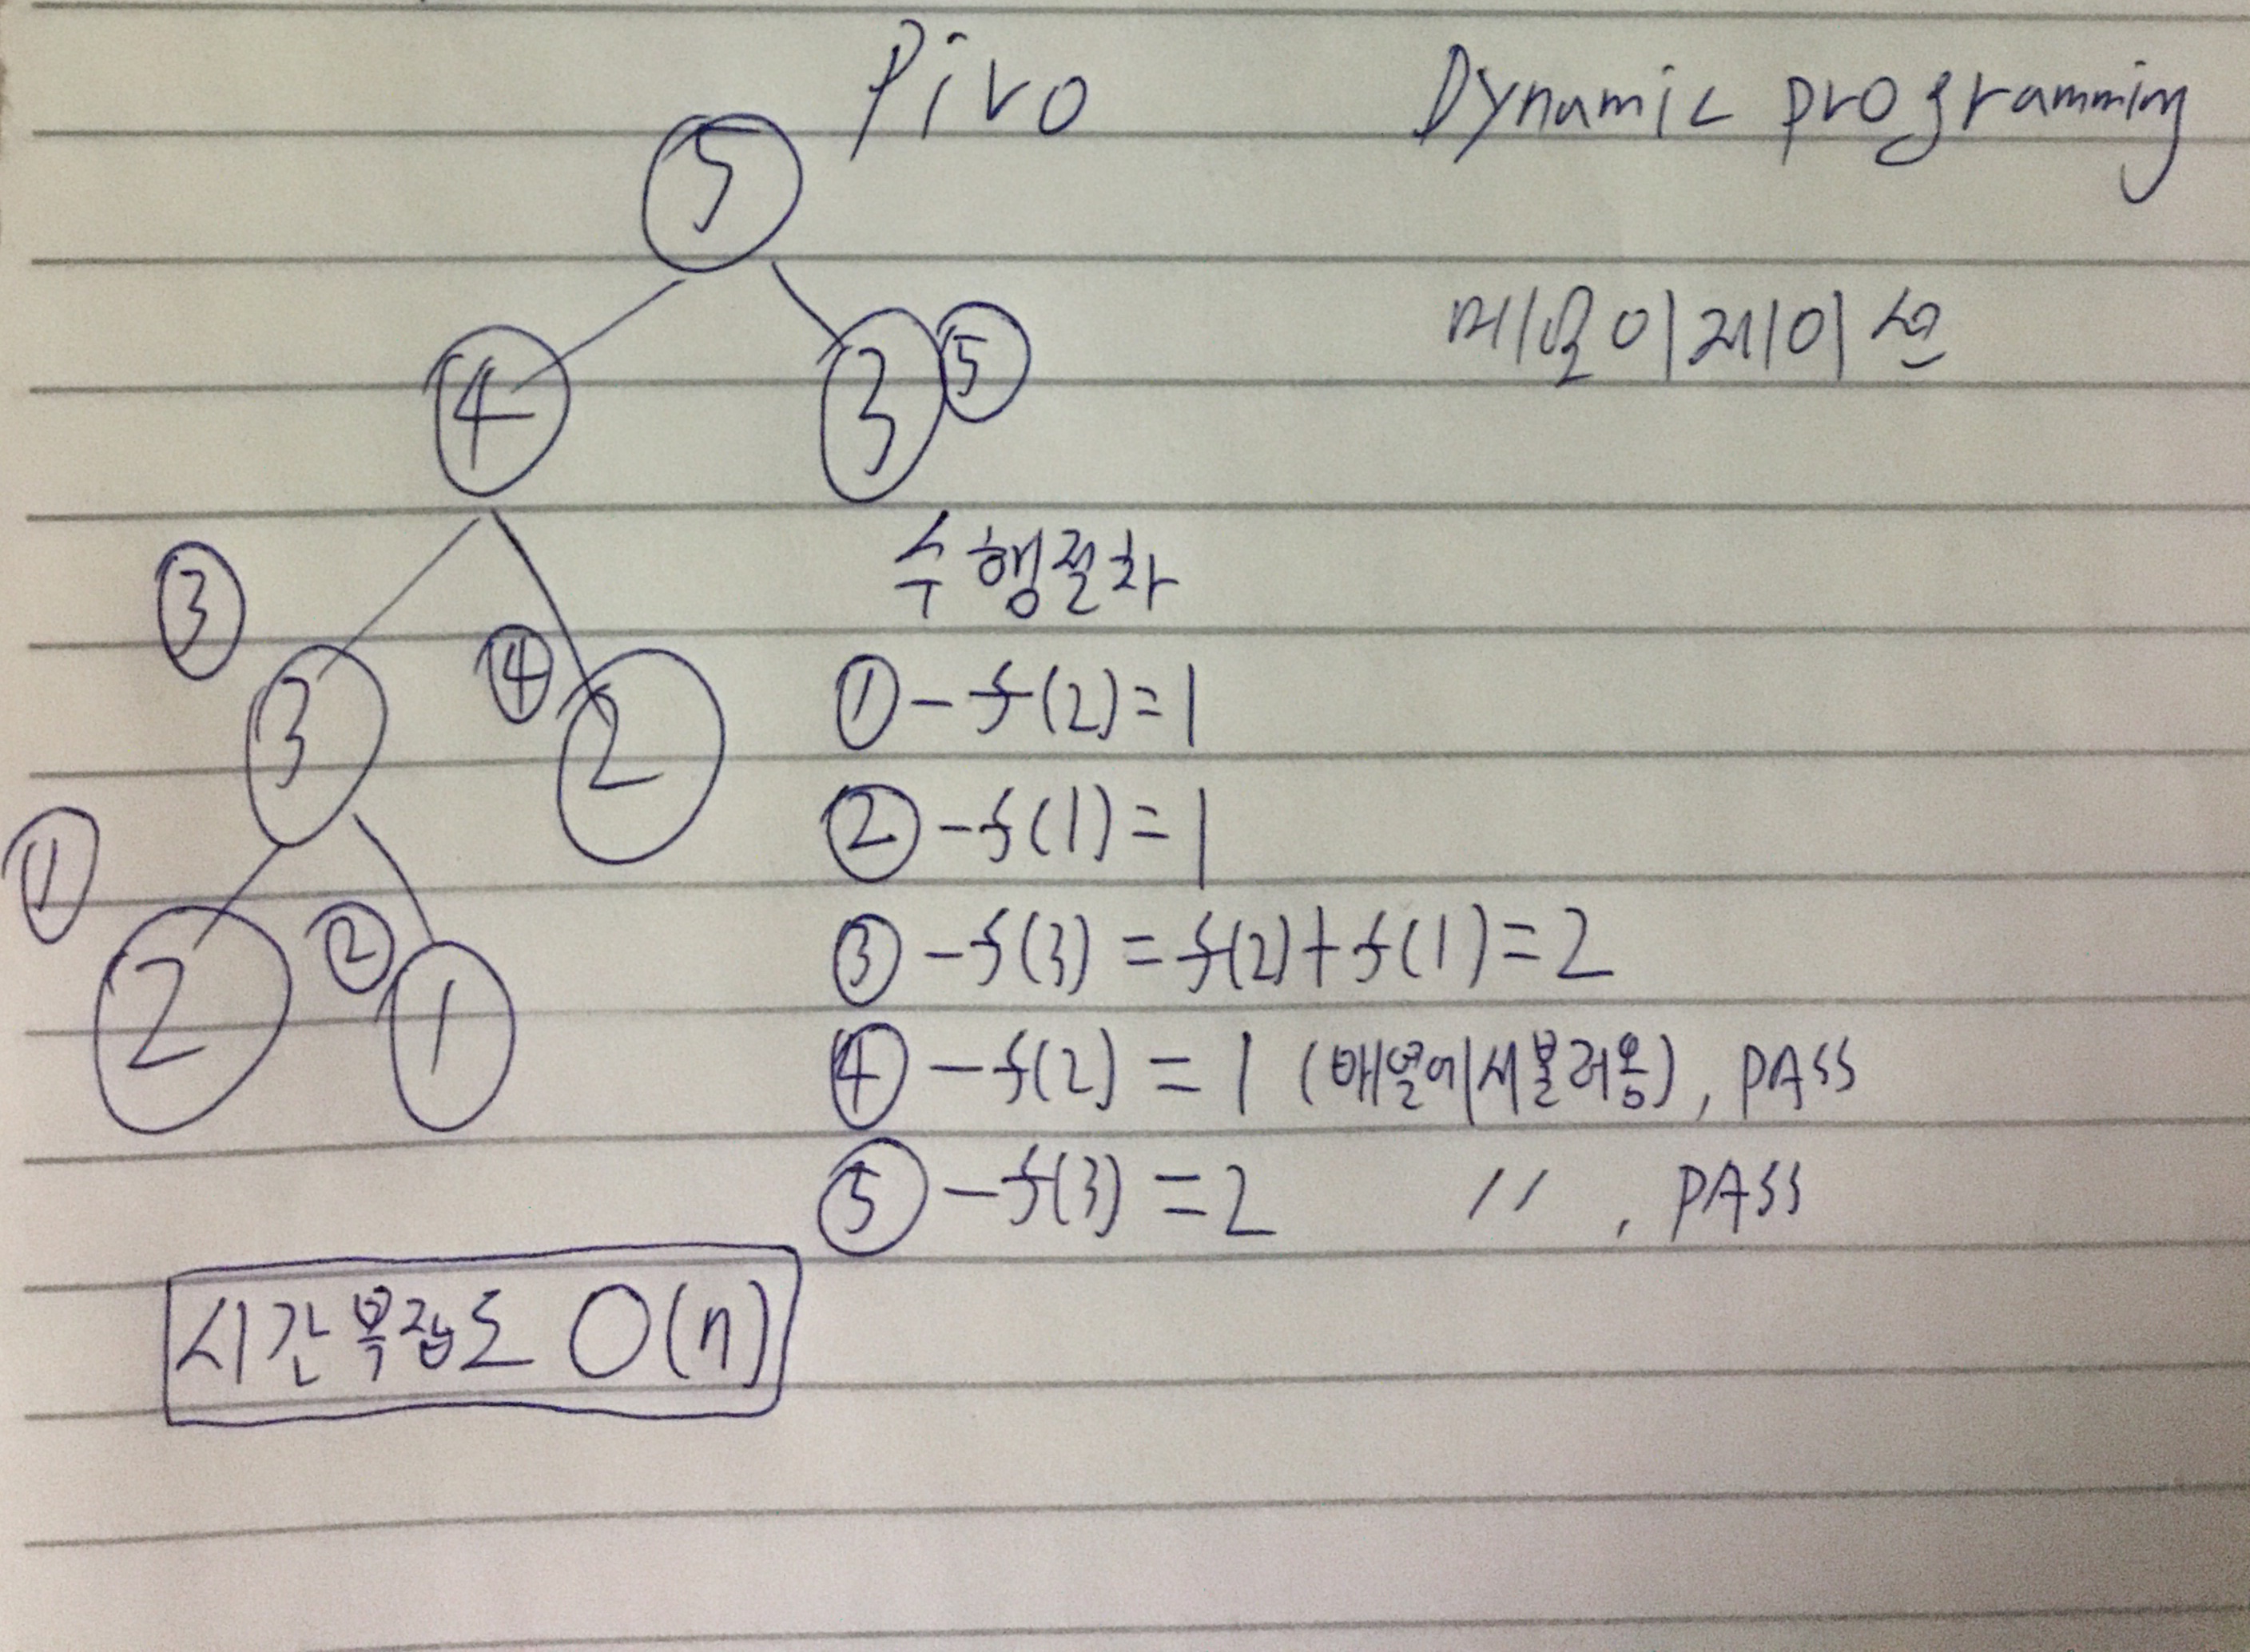 Pivo
Dynamic programming
5
메모이제이션
4
3 ⑤
수행절차
③
3
④ 2
① - f(2)=1
② - f(1)=1
①
2
② 1
③ - f(3) = f(2)+f(1)=2
④ - f(2) = 1 (배열에서불러옴), PASS
⑤ - f(3) = 2 〃 , PASS
시간복잡도 O(n)